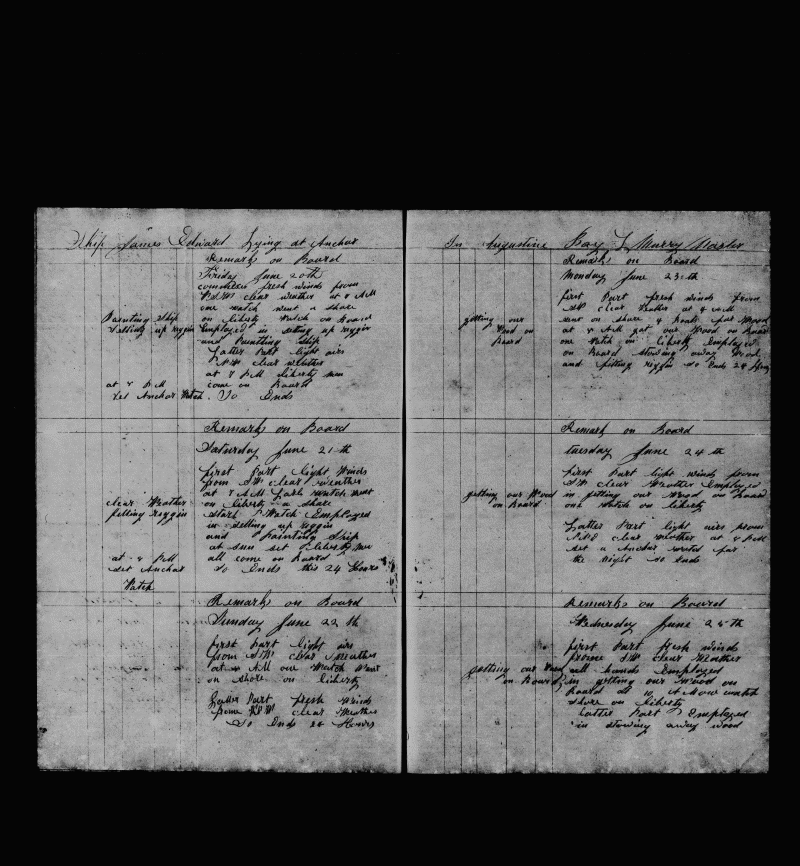 Ship James Edward Lying at Anchor
Remarks on Board
Friday June 20th
comences fresh winds from
clear weather at 8 AM
one watch went a shore
on liberty Watch on Board
Employed in setting up riggin
and Painting Ship
Latter Part light airs
clear weather
at 8 PM liberty men
come on Board
So Ends
Painting Ship
Setting up riggin
at 8 PM
Set Anchor Watch
Remarks on Board
Saturday June 21th
first Part light Winds
from SW clear weather
at 7 AM Larb watch went
on liberty a shore
Watch Employed
in setting up riggin
and Painting Ship
at sun set liberty men
all come on board
So Ends this 24 Hours
clear Weather
fitting riggin
at 8 PM
Set Anchor
Watch
Remarks on Board
Sunday June 22th
first Part light airs
from SW clear Weather
at AM one Watch Went
on shore on liberty
Latter Part fresh Winds
frome clear Weather
So Ends 24 Hours
In Augustine Bay Murry Master
Remarks on Board
Monday June 23th
first Part fresh winds from
SW clear Weather at 4 AM
went on shore 4 boats got Wood
at AM got our Wood on board
one Watch on liberty Employed
on board stowing away Wood
and fitting riggin So Ends 24 Hours
getting our
Wood on
Board
Remark on Board
tuesday June 24th
first Part light winds from
SW clear Weather Employed
in getting our Wood on board
one watch on liberty
Latter Part light airs from
clear weather at 8 PM
set a Anchor watch for
the Night So Ends
getting our Wood
on board
Remarks on Board
Wednesday June 25th
first Part fresh winds
frome SW clear Weather
all hands Employed
in getting our Wood on
board at 10 AM one watch
shore on Liberty
Latter Part Employed
in stowing away wood
getting our Wood
on Board